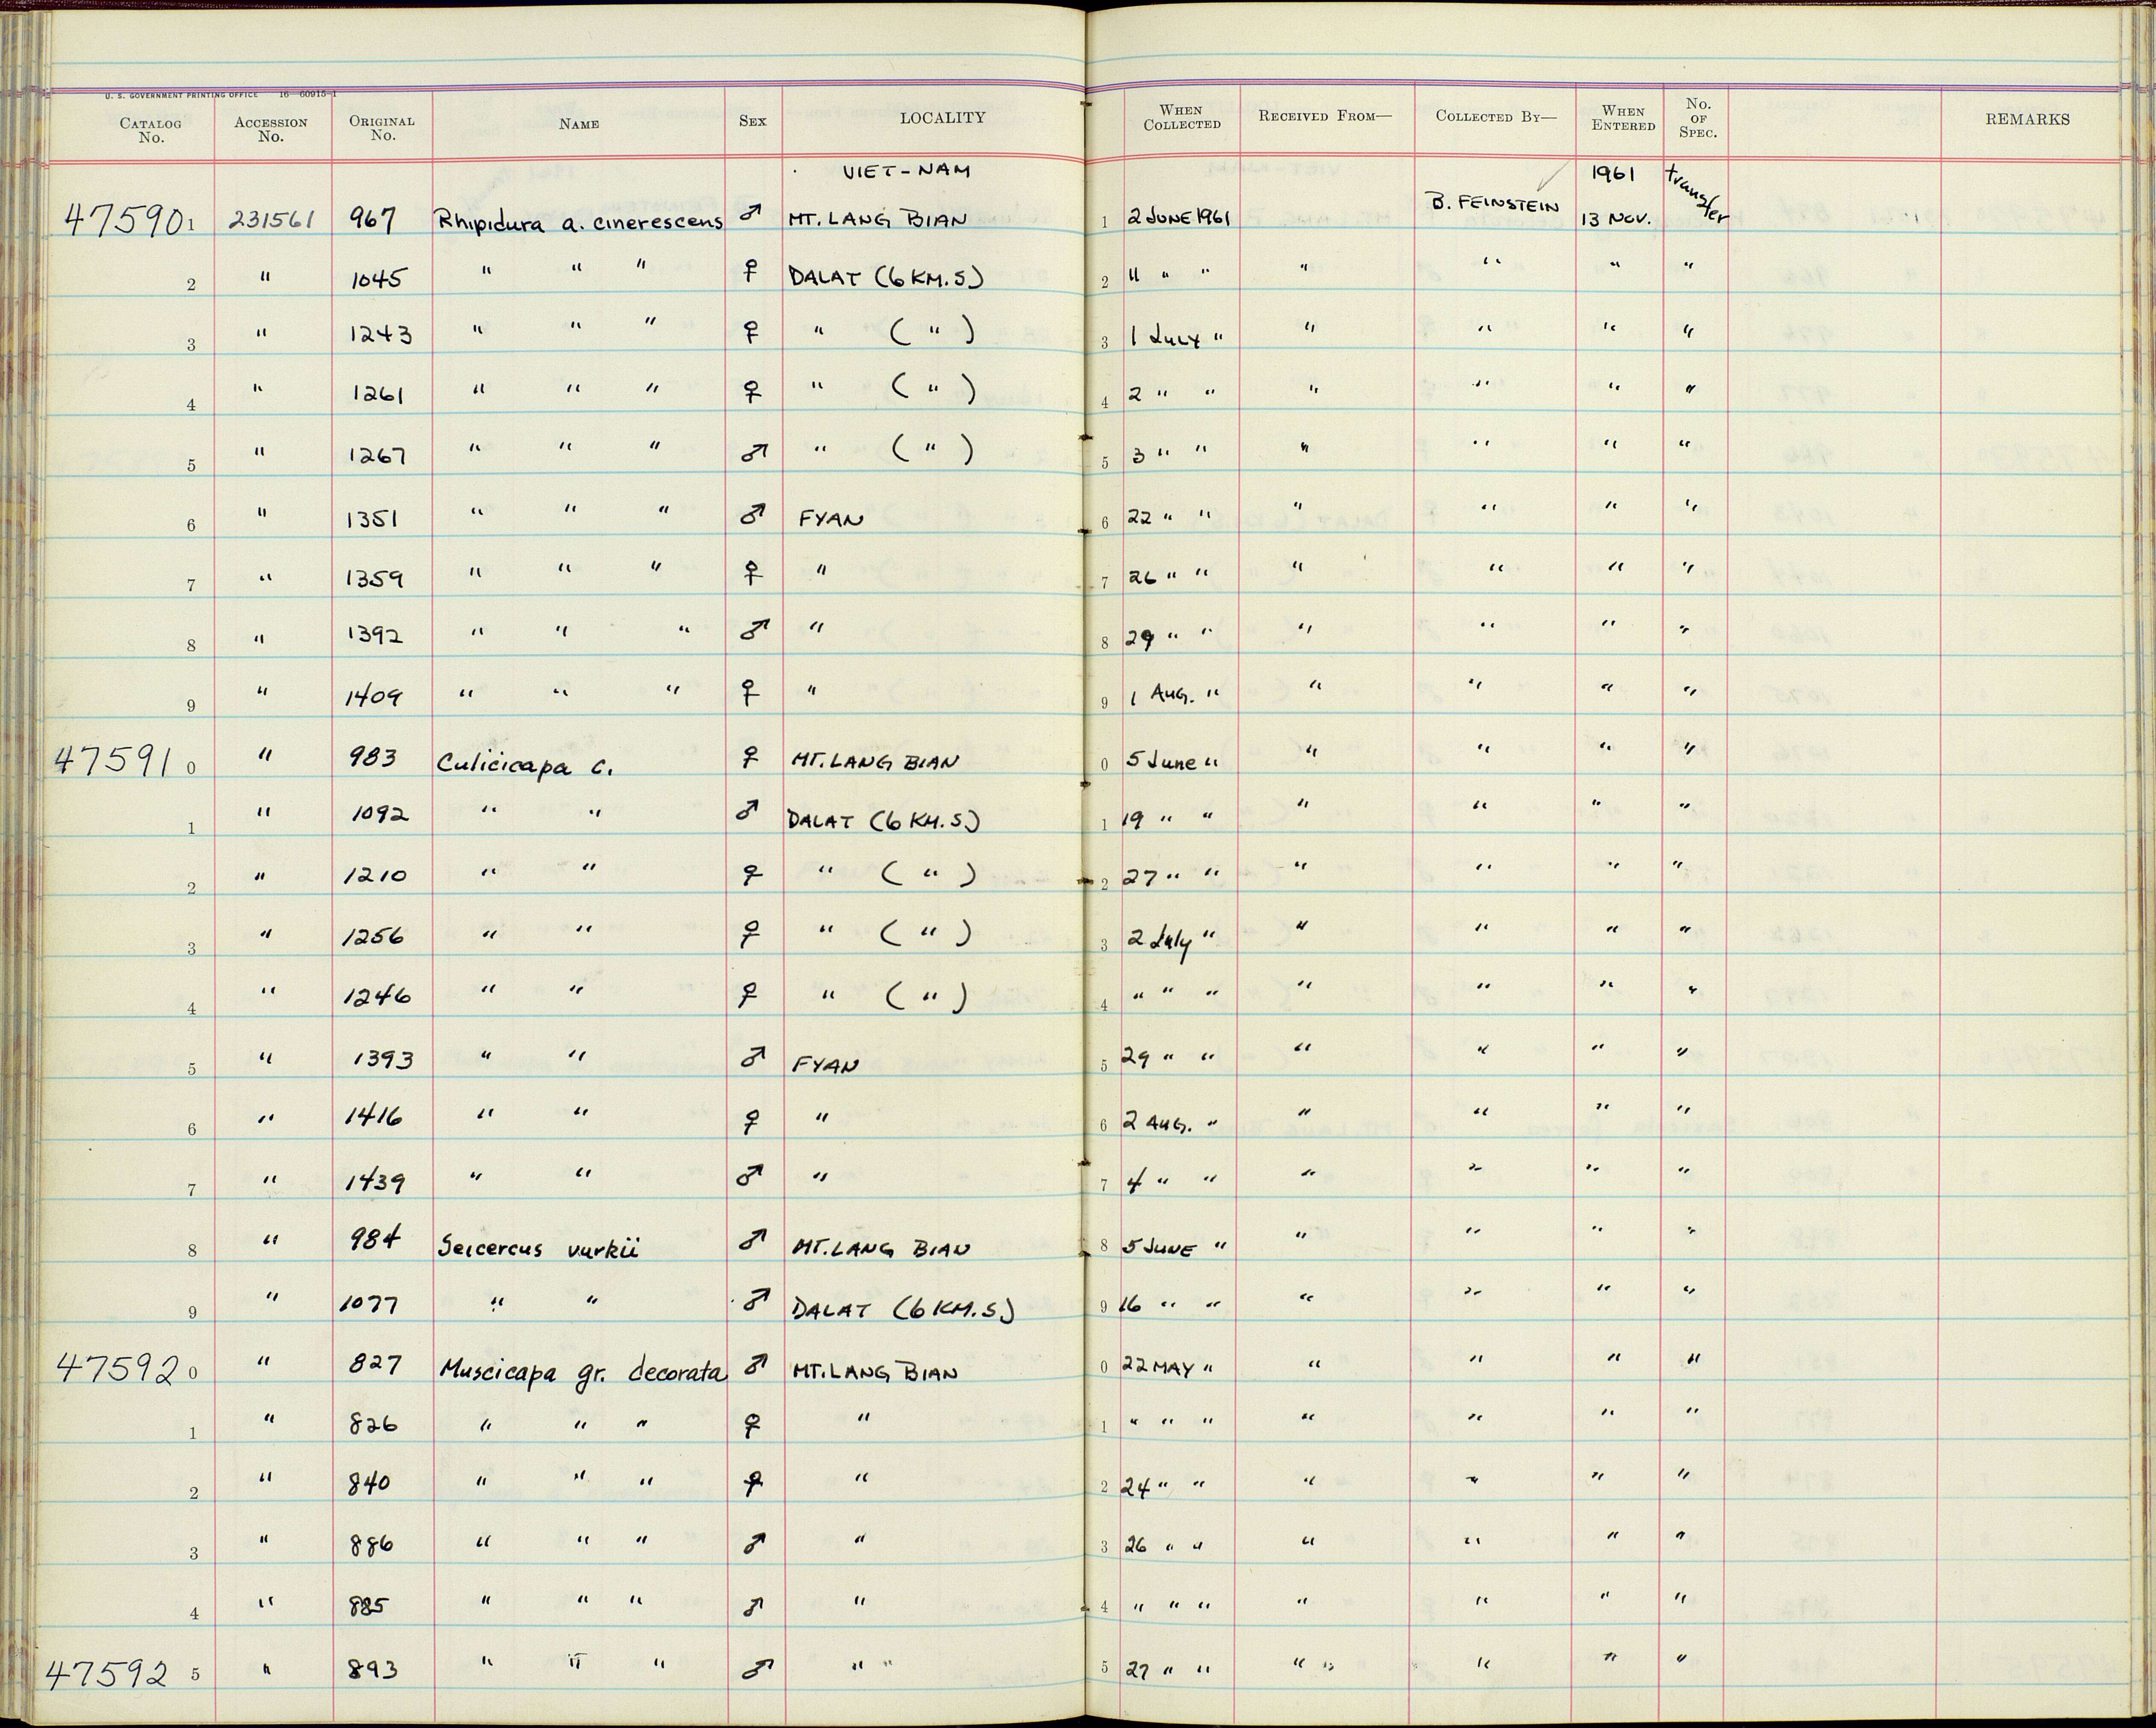 U. S. GOVERNMENT PRINTING OFFICE 16—60915-1
CATALOG No. ACCESSION No. ORIGINAL No. NAME SEX LOCALITY WHEN COLLECTED RECEIVED FROM— COLLECTED BY— WHEN ENTERED No. OF SPEC. REMARKS
VIET-NAM 1961
47590 1 231561 967 Rhipidura a. cinerescens ♂ MT. LANG BIAN 1 2 JUNE 1961 B. FEINSTEIN 13 NOV. transfer
2 " 1045 " " " ♀ DALAT (6 KM. S) 2 11 " " " " " "
3 " 1243 " " " ♀ " ( " ) 3 1 July " " " " "
4 " 1261 " " " ♀ " ( " ) 4 2 " " " " " "
5 " 1267 " " " ♂ " ( " ) 5 3 " " " " " "
6 " 1351 " " " ♂ FYAN 6 22 " " " " " "
7 " 1359 " " " ♀ " 7 26 " " " " " "
8 " 1392 " " " ♂ " 8 29 " " " " " "
9 " 1409 " " " ♀ " 9 1 AUG. " " " " "
47591 0 " 983 Culicicapa c. ♀ MT. LANG BIAN 0 5 June " " " " "
1 " 1092 " " ♂ DALAT (6 KM. S) 1 19 " " " " " "
2 " 1210 " " ♀ " ( " ) 2 27 " " " " " "
3 " 1256 " " ♀ " ( " ) 3 2 July " " " " "
4 " 1246 " " ♀ " ( " ) 4 " " " " " " "
5 " 1393 " " ♂ FYAN 5 29 " " " " " "
6 " 1416 " " ♀ " 6 2 AUG. " " " " "
7 " 1439 " " ♂ " 7 4 " " " " " "
8 " 984 Seicercus vurkii ♂ MT. LANG BIAN 8 5 JUNE " " " " "
9 " 1077 " " ♂ DALAT (6 KM. S) 9 16 " " " " " "
47592 0 " 827 Muscicapa gr. decorata ♂ MT. LANG BIAN 0 22 MAY " " " " "
1 " 826 " " " ♀ " 1 " " " " " " "
2 " 840 " " " ♀ " 2 24 " " " " " "
3 " 886 " " " ♂ " 3 26 " " " " " "
4 " 885 " " " ♂ " 4 " " " " " " "
47592 5 " 893 " " " ♂ " " 5 27 " " " " " " "